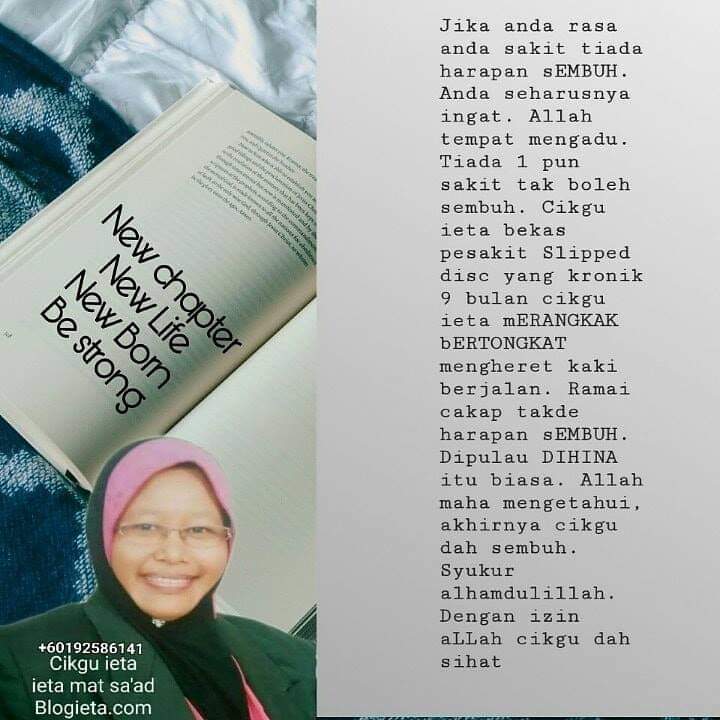 New chapter
New Life
New Born
Be strong
+60192586141
Cikgu ieta
ieta mat sa'ad
Blogieta.com
Jika anda rasa
anda sakit tiada
harapan sEMBUH.
Anda seharusnya
ingat. Allah
tempat mengadu.
Tiada 1 pun
sakit tak boleh
sembuh. Cikgu
ieta bekas
pesakit Slipped
disc yang kronik
9 bulan cikgu
ieta mERANGKAK
bERTONGKAT
mengheret kaki
berjalan. Ramai
cakap takde
harapan sEMBUH.
Dipulau DIHINA
itu biasa. Allah
maha mengetahui,
akhirnya cikgu
dah sembuh.
Syukur
alhamdulillah.
Dengan izin
aLLah cikgu dah
sihat